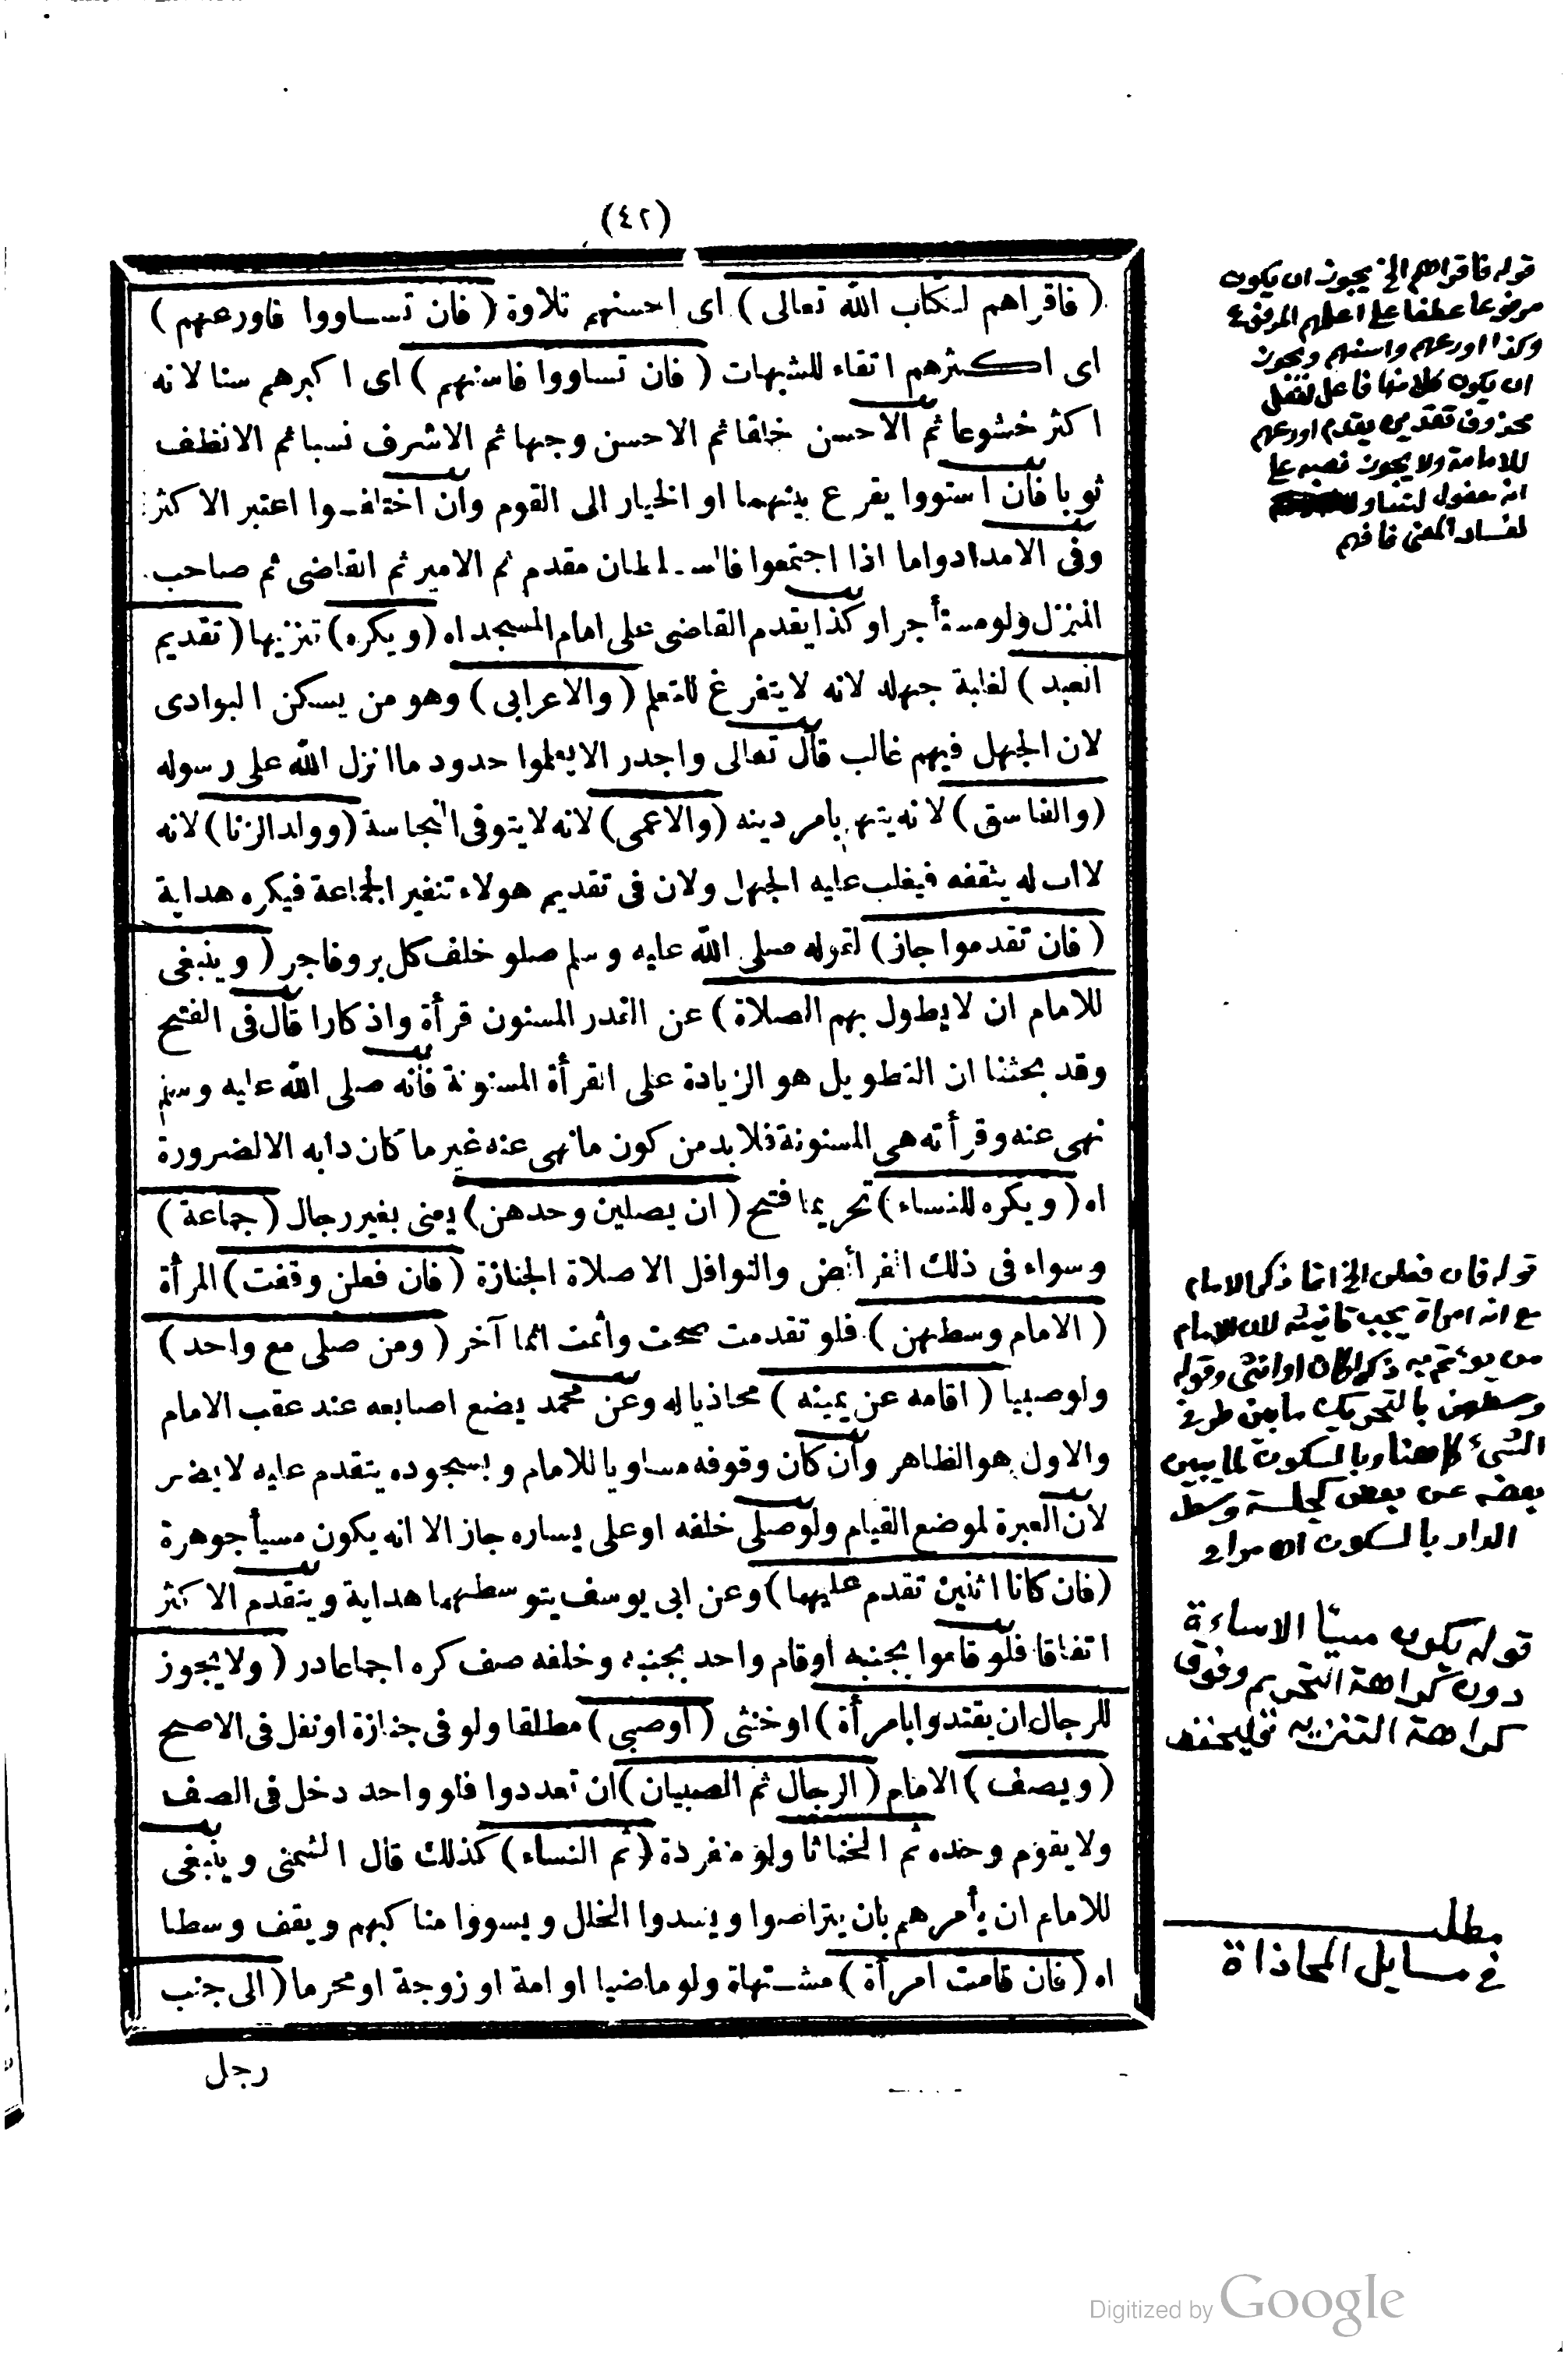 (٤٢)
(فاقراهم لكتاب الله تعالى) اى احسنهم تلاوة (فان تساووا فاورعهم)
اى اكثرهم اتقاء للشبهات (فان تساووا فاسنهم) اى اكبرهم سنا لانه
اكثر خشوعا ثم الاحسن خلقا ثم الاحسن وجها ثم الاشرف نسبا ثم الانظف
ثوبا فان استووا يقرع بينهما او الخيار الى القوم وان اختلفوا اعتبر الاكثر
وفى الامداد واما اذا اجتمعوا فالسلطان مقدم ثم الامير ثم القاضى ثم صاحب
المنزل ولو مستأجرا وكذا يقدم القاضى على امام المسجد اه (ويكره) تنزيها (تقديم
العبد) لغلبة جهله لانه لا يتفرغ للتعلم (والاعرابى) وهو من يسكن البوادى
لان الجهل فيهم غالب قال تعالى واجدر الا يعلموا حدود ما انزل الله على رسوله
(والفاسق) لانه يتهم بامر دينه (والاعمى) لانه لا يتوقى النجاسة (وولد الزنا) لانه
لا اب له يثقفه فيغلب عليه الجهل ولان فى تقديم هولاء تنفير الجماعة فيكره هداية
(فان تقدموا جاز) لقوله صلى الله عليه وسلم صلو خلف كل بر وفاجر (وينبغى
للامام ان لا يطول بهم الصلاة) عن القدر المسنون قرأة واذكارا قال فى الفتح
وقد بحثنا ان التطويل هو الزيادة على القرأة المسنونة فانه صلى الله عليه وسلم
نهى عنه وقرأته هى المسنونة فلا بد من كون ما نهى عنه غير ما كان دابه الا لضرورة
اه (ويكره للنساء) تحريما فتح (ان يصلين وحدهن) يعنى بغير رجال (جماعة)
وسواء فى ذلك الفرائض والنوافل الا صلاة الجنازة (فان فعلن وقفت) المرأة
(الامام وسطهن) فلو تقدمت صحت وأثمت اثما آخر (ومن صلى مع واحد)
ولو صبيا (اقامه عن يمينه) محاذيا له وعن محمد يضع اصابعه عند عقب الامام
والاول هو الظاهر وان كان وقوفه مساويا للامام وبسجوده يتقدم عليه لا يضر
لان العبرة لموضع القيام ولو صلى خلفه او على يساره جاز الا انه يكون مسيأ جوهرة
(فان كانا اثنين تقدم عليهما) وعن ابى يوسف يتوسطهما هداية ويتقدم الاكثر
اتفاقا فلو قاموا بجنبه او قام واحد بجنبه وخلفه صف كره اجماعا در (ولا يجوز
للرجال ان يقتدوا بامرأة) او خنثى (اوصبى) مطلقا ولو فى جنازة او نفل فى الاصح
(ويصف) الامام (الرجال ثم الصبيان) ان تعددوا فلو واحد دخل فى الصف
ولا يقوم وحده ثم الخناثا ولو منفردة (ثم النساء) كذلك قال الشمنى وينبغى
للامام ان يأمرهم بان يتراصوا ويسدوا الخلل ويسووا مناكبهم ويقف وسطا
اه (فان قامت امرأة) مشتهاة ولو ماضيا او امة او زوجة او محرما (الى جنب
رجل
قوله فاقراهم الخ يجوز ان يكون
مرفوعا عطفا على اعلمهم المرفوع
وكذا اورعهم واسنهم ويجوز
ان يكون كلا منها فاعل لفعل
محذوف تقديره يقدم اورعهم
للامامة ولا يجوز نصبه على
انه مفعول لتساووا
لفساد المعنى فافهم
قوله فان فعلن الخ انما ذكر الامام
مع انه امراة يجب تانيثه لان الامام
من يؤتم به ذكرا كان او انثى وقوله
وسطهن بالتحريك ما بين طرفي
الشئ كما هنا وبالسكون لما يبين
بعضه عن بعض كجلست وسط
الدار بالسكون اه
قوله يكون مسيئا الاساءة
دون كراهة التحريم وفوق
كراهة التنزيه فليحفظ
مطلب
في مسايل المحاذاة
Digitized by Google